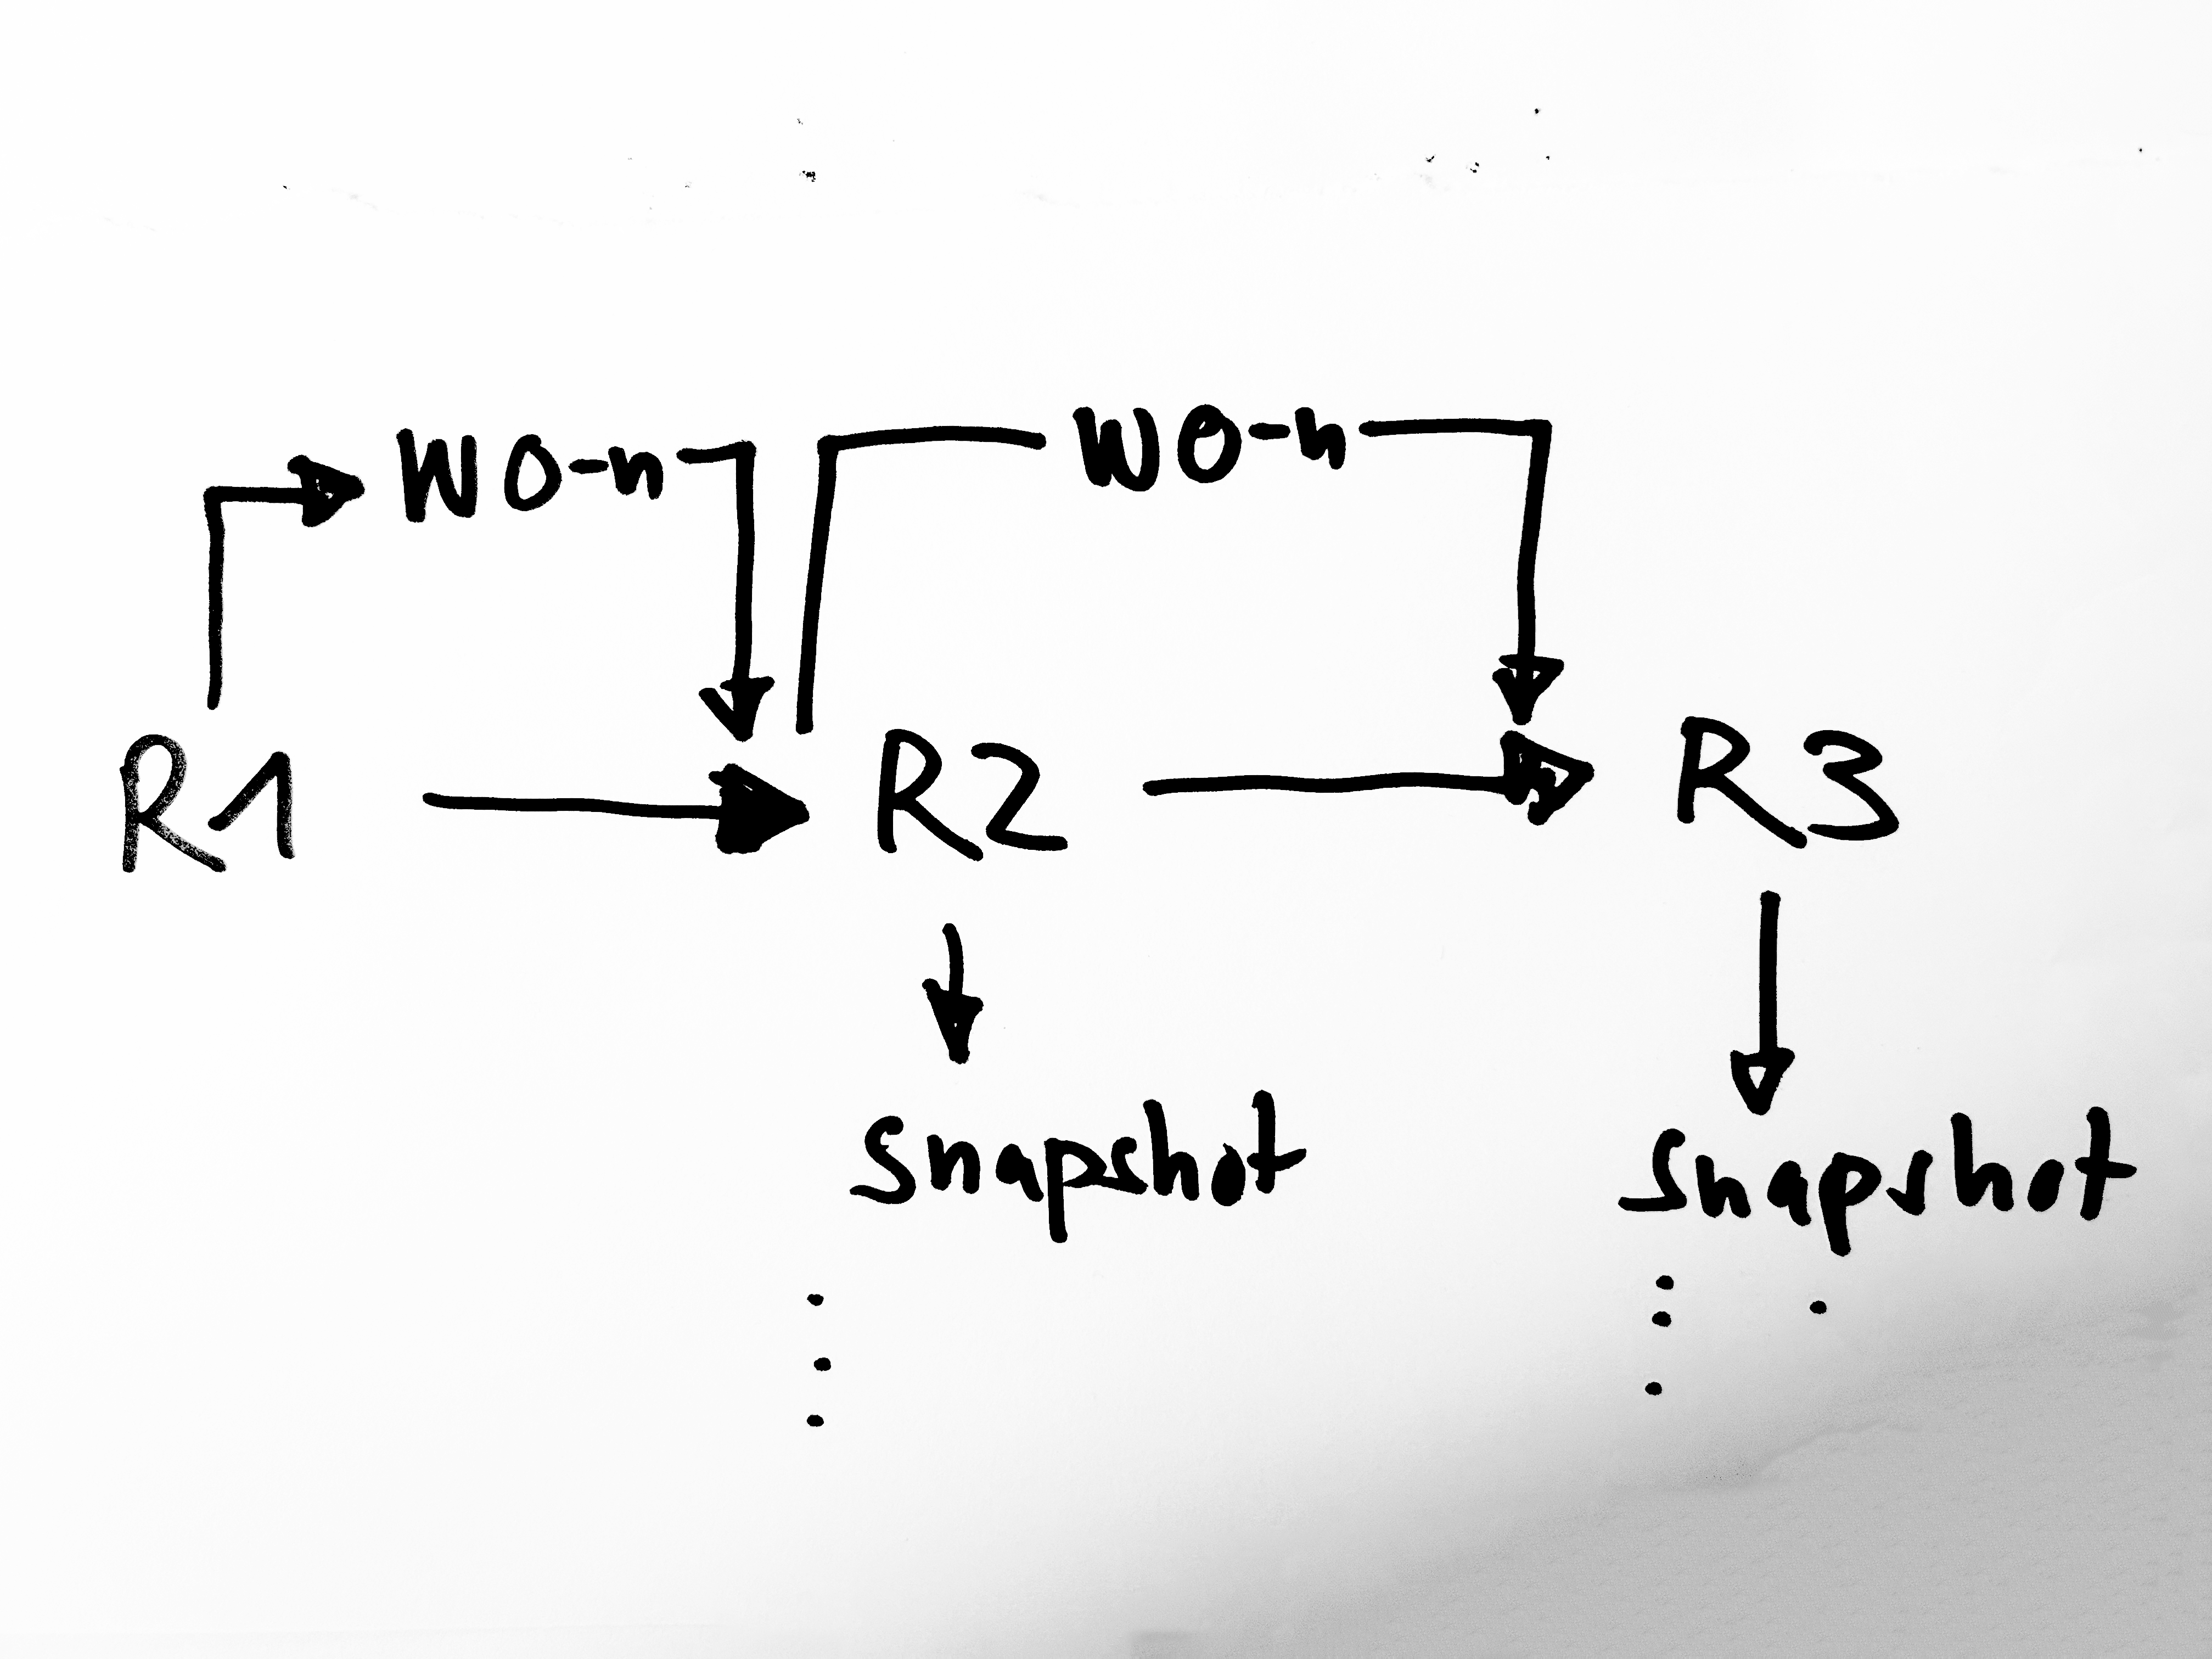 WO-n WO-n
R1 R2 R3
Snapshot Snapshot